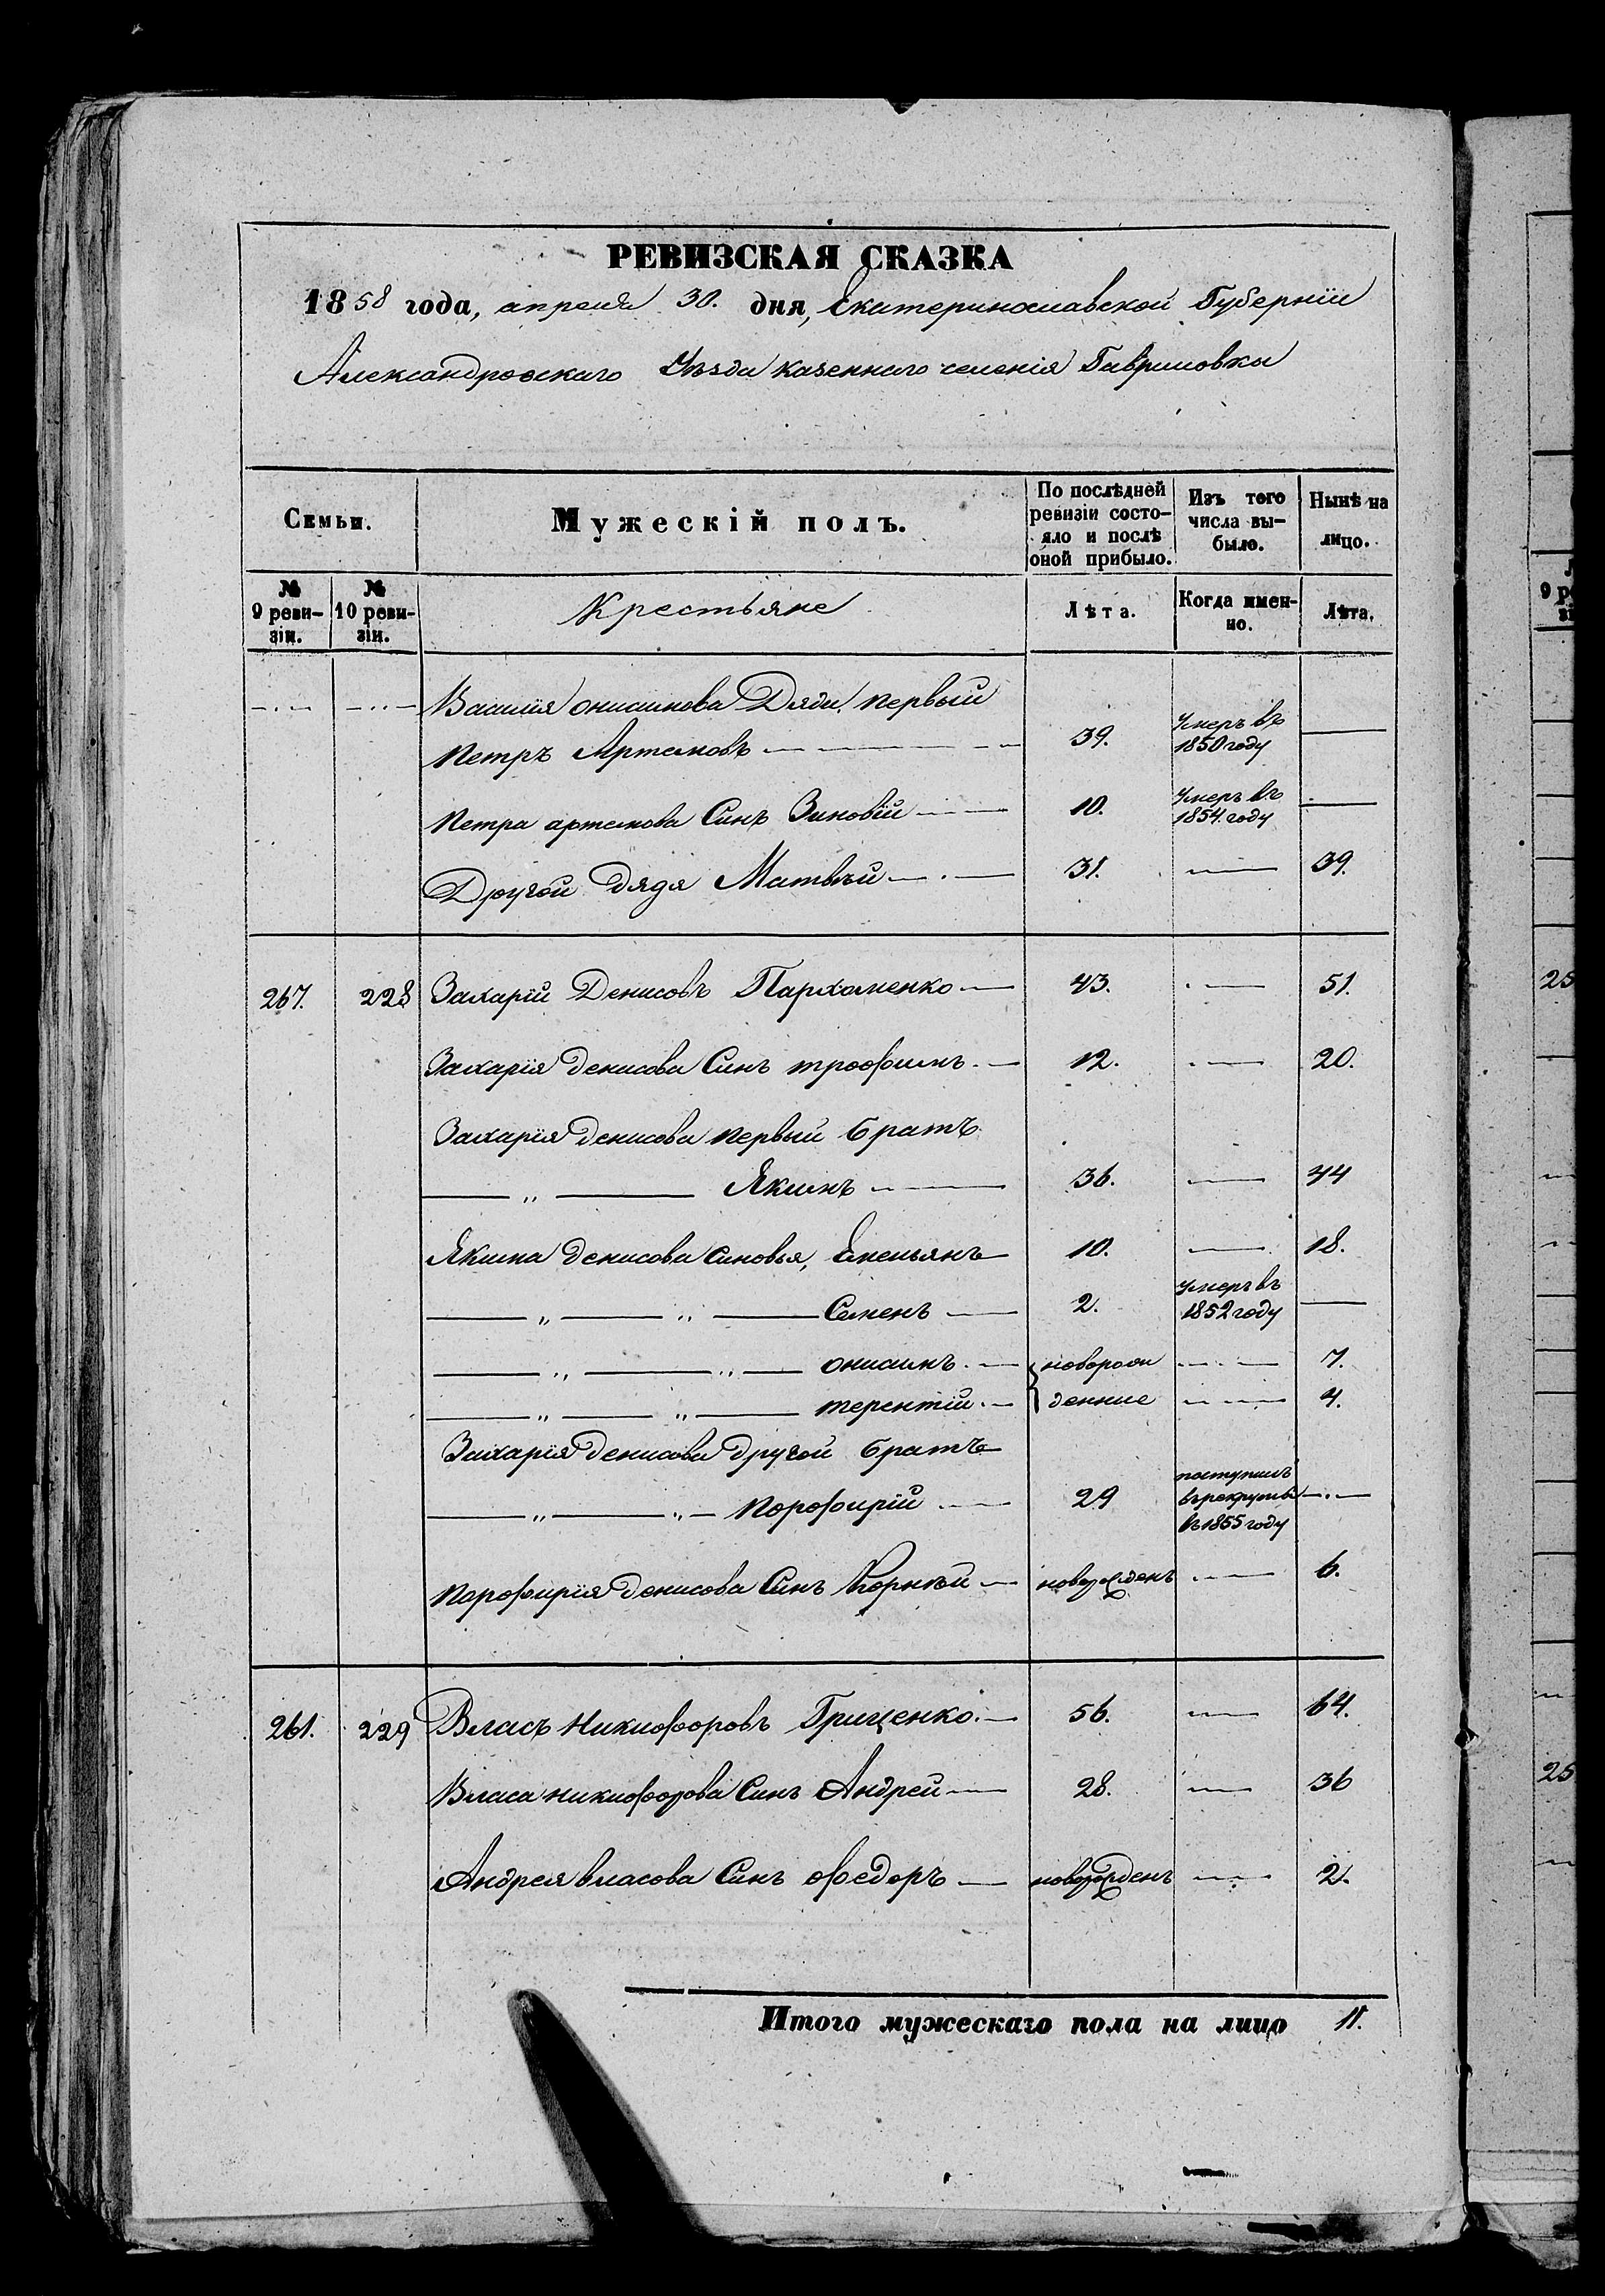 РЕВИЗСКАЯ СКАЗКА
1858 года, апреля 30. дня, Екатеринославской Губернїи
Александровскаго Уѣзда казеннаго селенія Гавриловки
Семьи.
Мужескій полъ.
По послѣдней ревизіи состо- яло и послѣ оной прибыло.
Изъ того числа вы- было.
Нынѣ на лицо.
№ 9 реви- зіи.
№ 10 реви- зіи.
Крестьяне
Лѣта.
Когда имен- но.
Лѣта.
Василія онисимова Дяди, первый
Петръ Артемовъ 39. Умеръ въ 1850 году
Петра артемова Синъ Зиновїй 10. Умеръ въ 1854. году
Другой дядя Матвѣй 31. 39.
267. 228 Захарїй Денисовъ Пархоменко 43. 51.
Захарїя денисова Синъ трофимъ 12. 20.
Захарїя денисова первый братъ
Якимъ 36. 44
Якима денисова синовья, Емельянъ 10. 18.
Семенъ 2. Умеръ въ 1852 году
онисимъ новорож 7.
терентїй денние 4.
Захарїя денисова другой братъ
порофирїй 29 поступилъ в рекруты въ 1855 году
порофирїя денисова Синъ Корнѣй новорожденъ 6.
261. 229 Власъ Никифоровъ Гриценко 56. 64.
Власа никифорова Синъ Андрей 28. 36
Андрея власова Синъ федоръ новорожденъ 2.
Итого мужескаго пола на лицо 11.
25
25